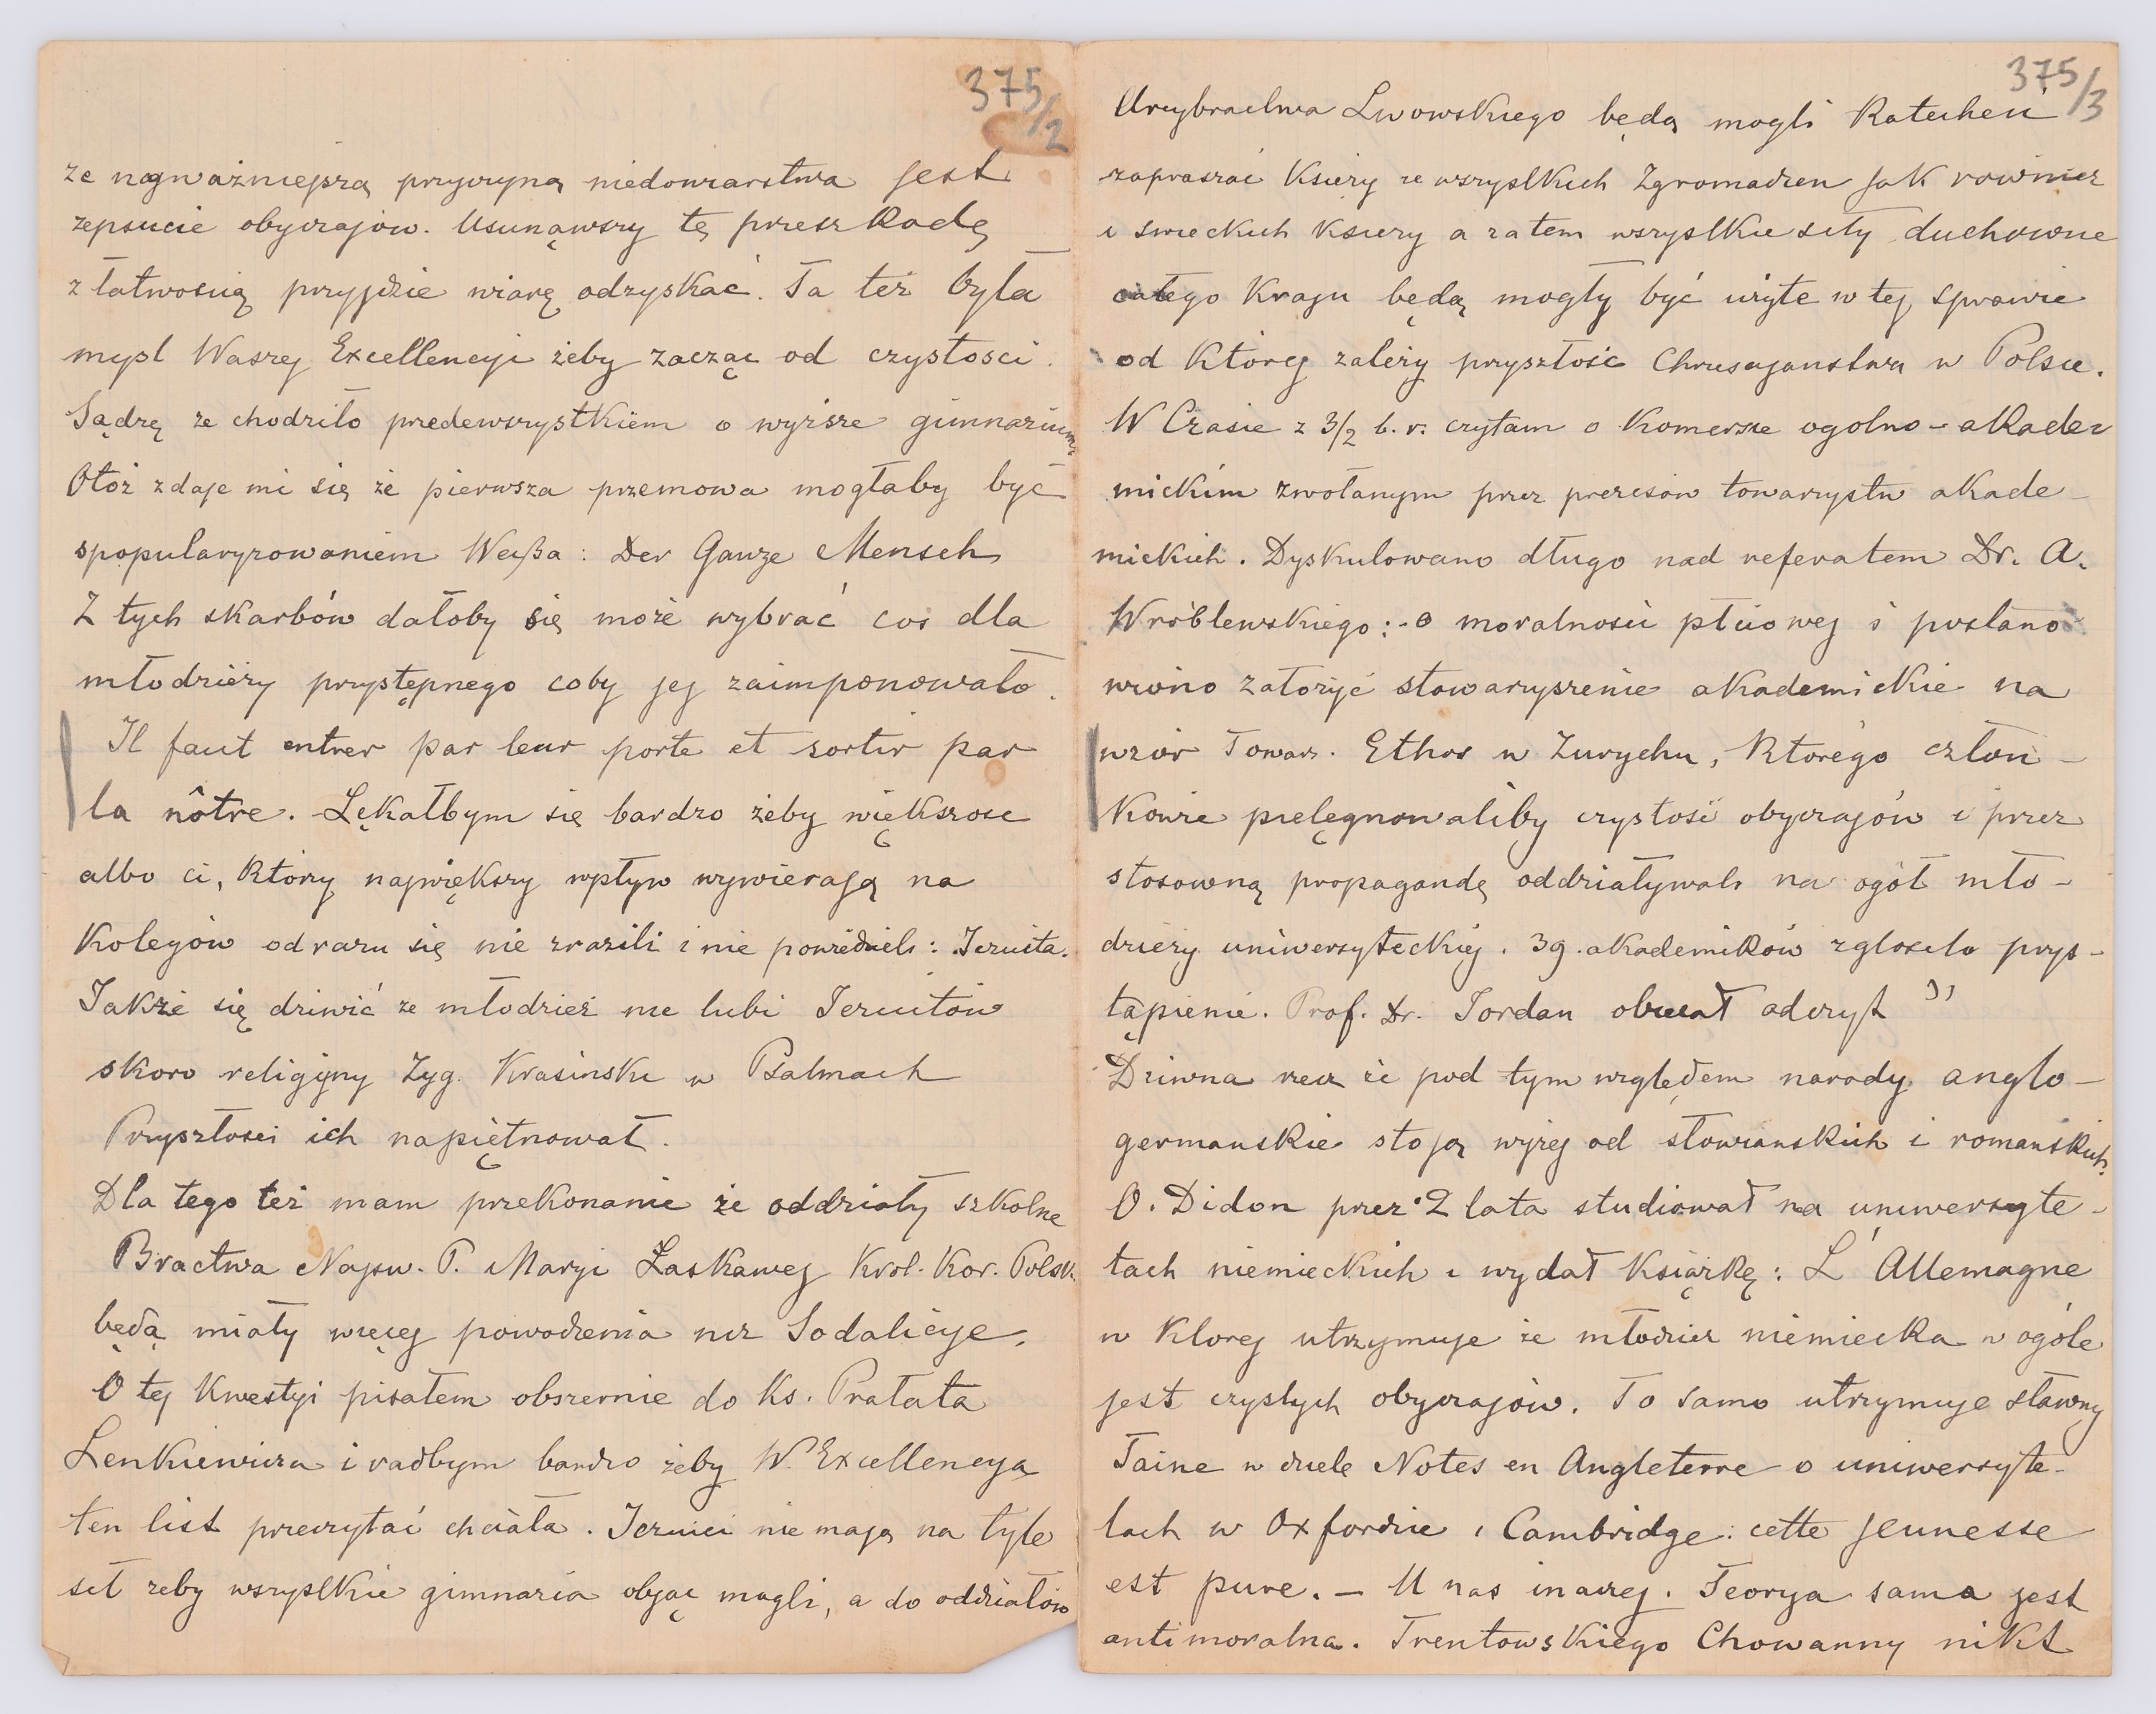 375/2
że najważniejszą przyczyną niedowiarstwa jest
zepsucie obyczajów. Usunąwszy tę przeszkodę
z łatwością przyjdzie wiarę odzyskać. Ta też była
mysl Waszej Excellencyi żeby zacząc od czystosci.
Sądzę że chodziło przedewszystkiem o wyższe gimnazium
Otóż zdaje mi się że pierwsza przemowa mogłaby być
spopularyzowaniem Weißa: Der Ganze Mensch
Z tych skarbów dałoby się może wybrać coś dla
młodzieży przystępnego coby jej zaimponowało.
Il faut entrer par leur porte et sortir par
la nôtre. Lękałbym się bardzo żeby większosc
albo ci, którzy największy wpływ wywierają na
kolegów od razu się nie zrazili i nie powiedzieli: Jezuita.
Jakże się dziwić ze młodzież nie lubi Jezuitów
skoro religijny Zyg. Krasinski w Psalmach
Przyszłosci ich napiętnował.
Dla tego też mam przekonanie że oddziały szkolne
Bractwa Najsw. P. Maryi Łaskawej Krol. Kor. Polsk.
będą miały więcej powodzenia niz Sodalicye.
O tej kwestyi pisałem obszernie do Ks. Prałata
Lenkiewicza i radbym bardzo żeby W. Excellencya
ten list przeczytać chciała. Jezuici nie mają na tyle
sił zeby wszystkie gimnazia objąc mogli, a do oddziałów
375/3
Arcybractwa Lwowskiego będą mogli Katecheci
zapraszać Księży ze wszystkich Zgromadzen jak rowniez
i swieckich Ksiezy a zatem wszystkie siły duchowne
całego Kraju będą mogły być użyte w tej sprawie
od której zależy przyszłość Chrzescijanstwa w Polsce.
W Czasie z 3/2 b. r. czytam o Komersie ogolno-akade-
mickim zwołanym przez prezesów towarzystw akade-
mickich. Dyskutowano długo nad referatem Dr. A.
Wróblewskiego: o moralnosci płciowej i postano-
wiono założyć stowarzyszenie akademickie na
wzór Towarz. Ethos w Zurychu, którego człon-
kowie pielęgnowaliby czystość obyczajów i przez
stosowną propagandę oddziaływali na ogół mło-
dzieży uniwersyteckiej. 39. akademików zgłosiło przys-
tąpienie. Prof. Dr. Jordan obiecał odczyt "
Dziwna rzecz że pod tym względem narody anglo-
germanskie stoją wyżej od słowianskich i romańskich.
O. Didon przez 2 lata studiował na uniwersyte-
tach niemieckich i wydał Książkę: L'Allemagne
w ktorej utrzymuje że młodziez niemiecka w ogóle
jest czystych obyczajów. To samo utrzymuje sławny
Taine w dziele Notes en Angleterre o uniwersyte-
tach w Oxfordzie i Cambridge: cette jeunesse
est pure. - U nas inaczej. Teorya sama jest
antimoralna. Trentowskiego Chowanny nikt